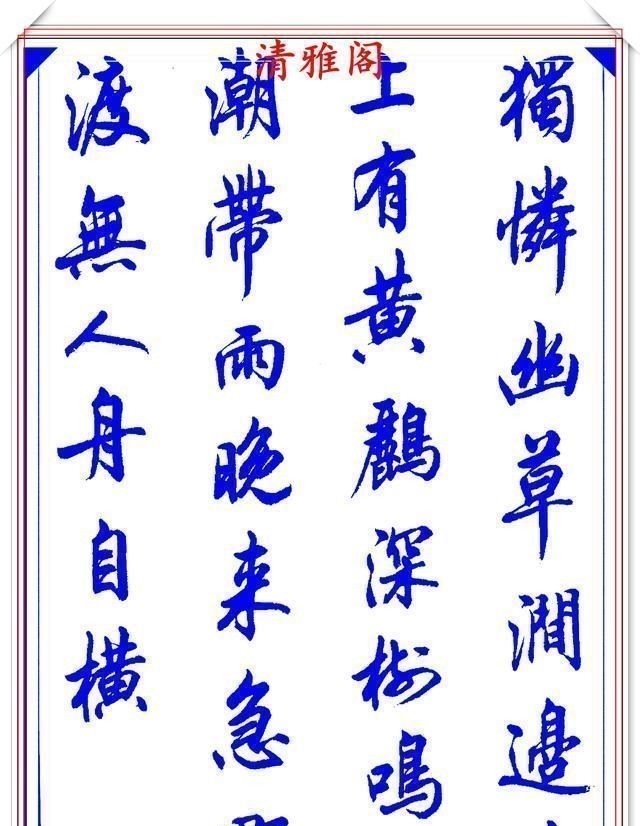 清雅阁
獨憐幽草澗邊
上有黄鸝深樹鳴
潮帶雨晚来急
渡無人舟自横